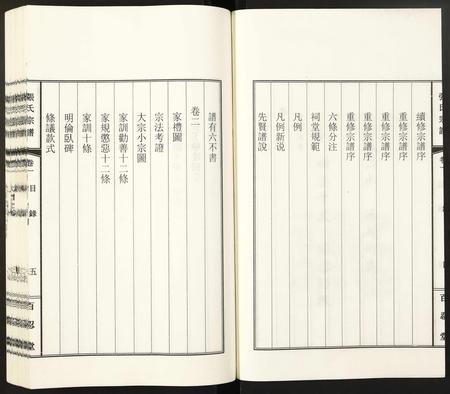 續修宗譜序
重修宗譜序
重修宗譜序
重修宗譜序
重修宗譜序
六條分注
祠堂規範
凡例
凡例新说
先賢譜說
百忍堂
譜有六不書
卷二
家禮圖
宗法考證
大宗小宗圖
家訓勸善十二條
家規懲惡十二條
家訓十條
明倫臥碑
條議款式
張氏宗譜
卷一
目錄
五
百忍堂